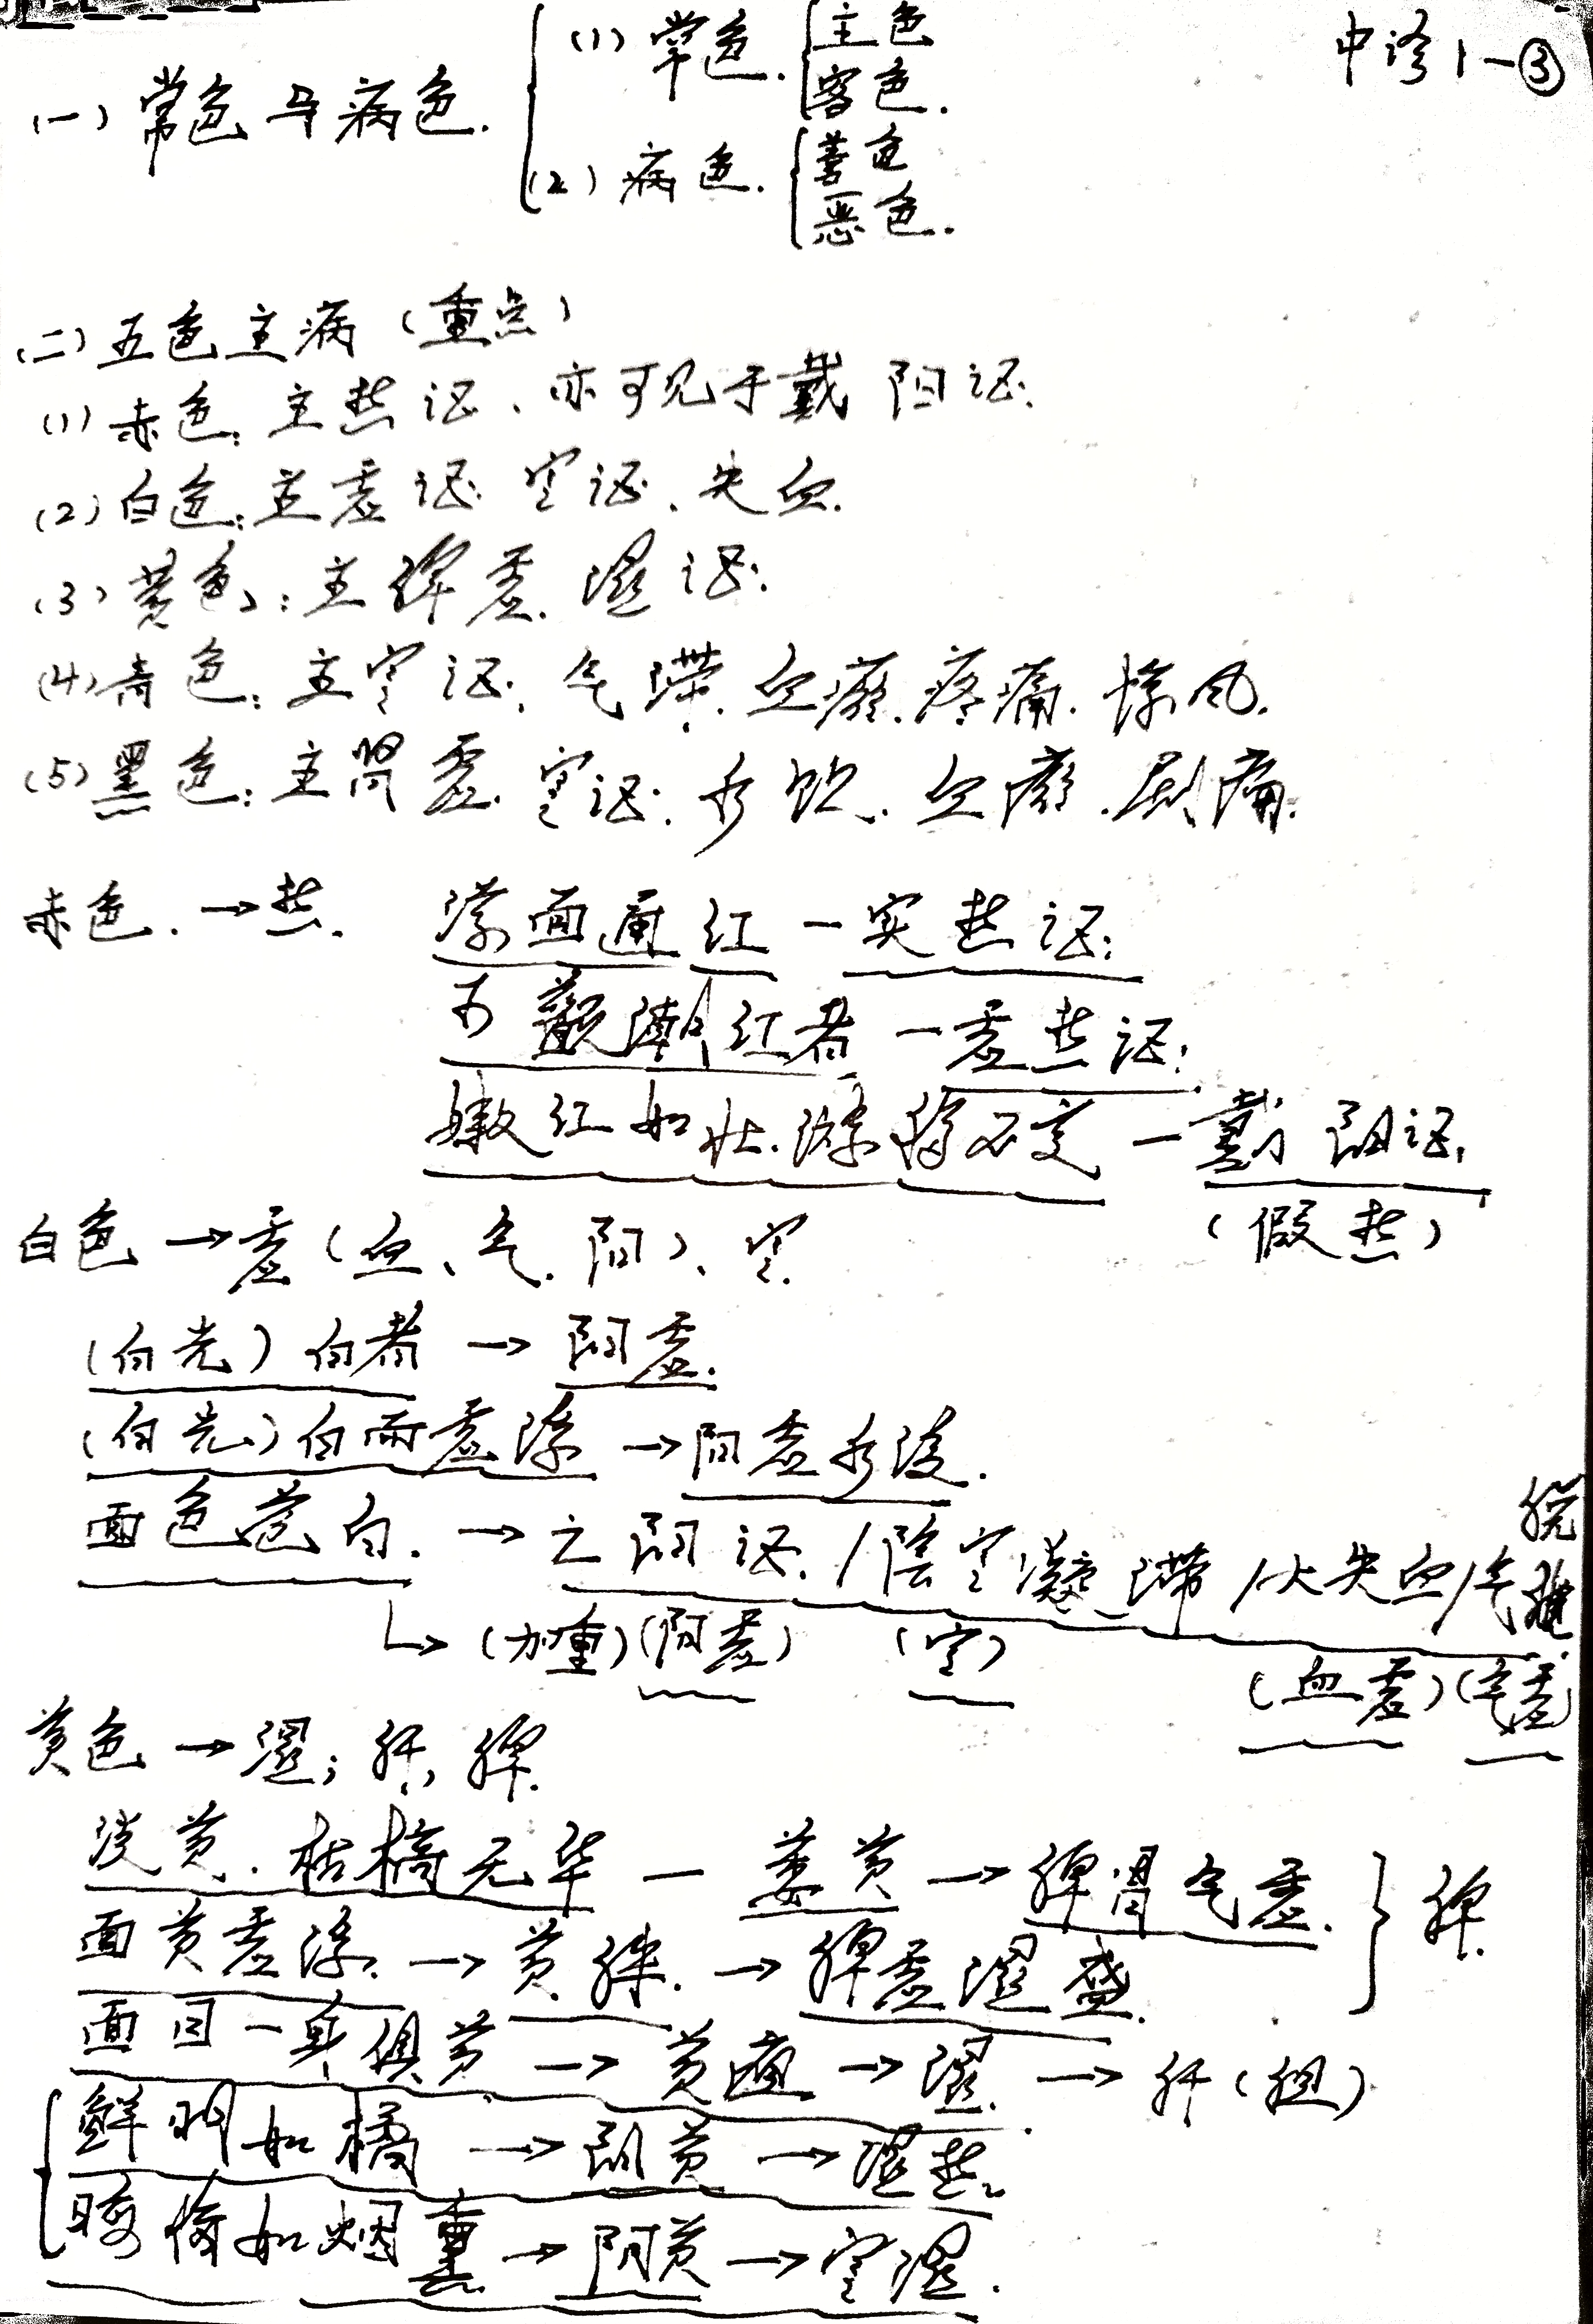 中诊1-③
(一)常色与病色.
(1)常色.
主色
客色.
(2)病色.
善色
恶色.
(二)五色主病(重点)
(1)赤色:主热证、亦可见于戴阳证.
(2)白色:主虚证.寒证、失血.
(3)黄色:主脾虚.湿证.
(4)青色:主寒证.气滞.血瘀.疼痛.惊风.
(5)黑色:主肾虚.寒证.水饮.血瘀.剧痛.
赤色.→热. 满面通红-实热证.
两颧潮红者-虚热证.
嫩红如妆.游移不定-戴阳证.
(假热)
白色→虚(血、气.阳)、寒.
(白光)白者→阳虚.
(白光)白而虚浮→阳虚水泛.
面色苍白.→亡阳证./陰寒凝滞/大失血/气脱
(加重)(阳虚) (寒) (血虚)(气虚)
黄色→湿;肝,脾.
淡黄.枯槁无华-萎黄→脾胃气虚.
面黄虚浮.→黄胖.→脾虚湿盛.
脾.
面目一身俱黄→黄疸→湿.→肝(胆)
鲜明如橘→阳黄→湿热.
晦暗如烟熏→阴黄→寒湿.